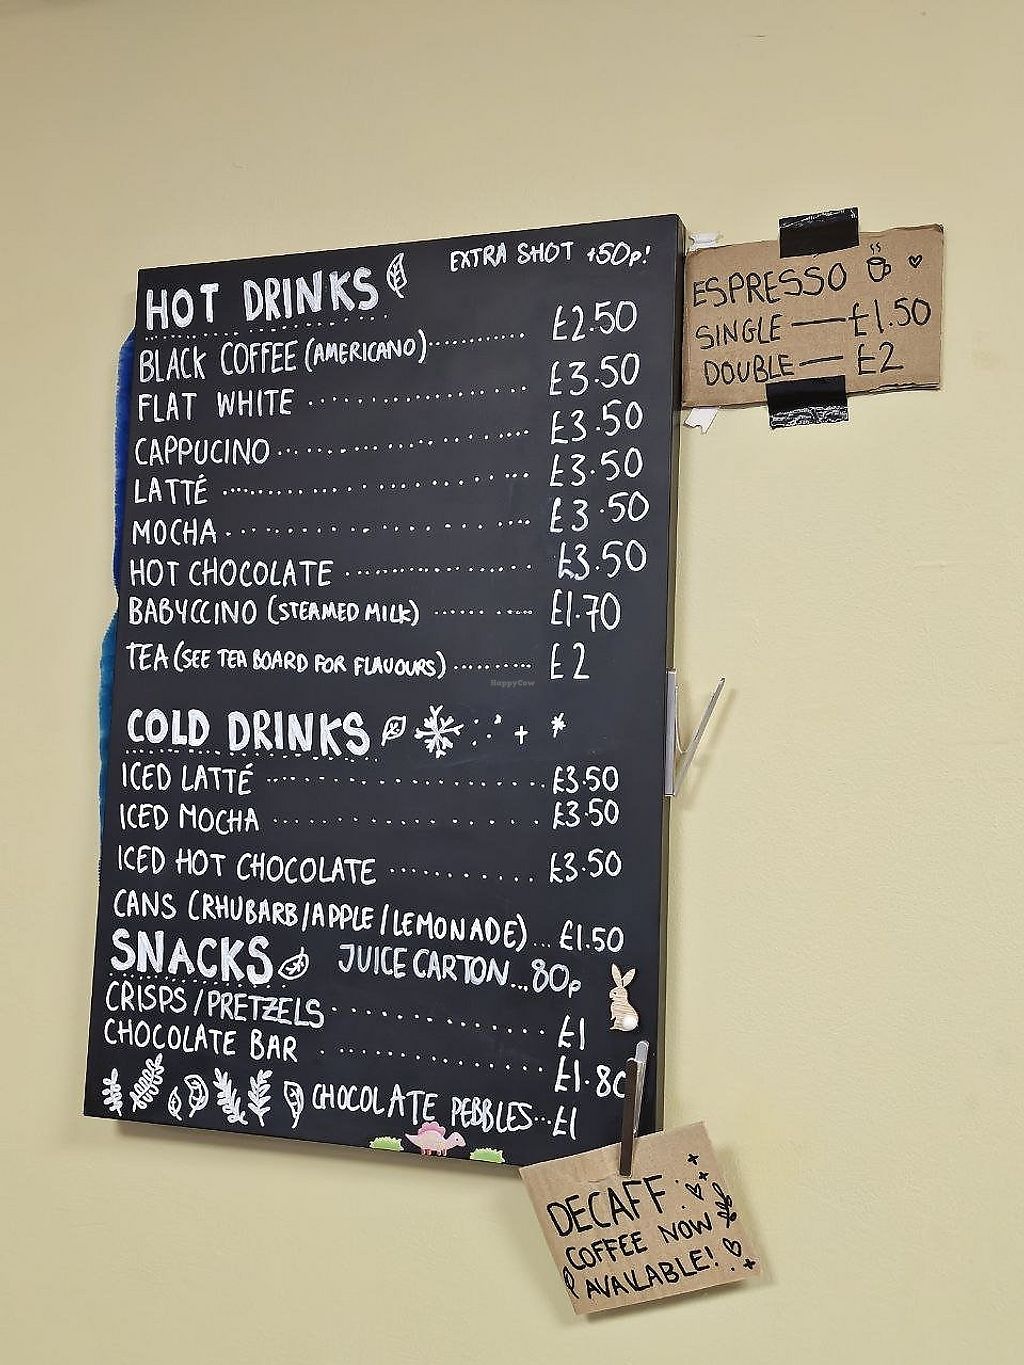 HOT DRINKS
EXTRA SHOT +50p!
BLACK COFFEE (AMERICANO) ............ £2.50
FLAT WHITE ............ £3.50
CAPPUCINO ............ £3.50
LATTÉ ............ £3.50
MOCHA ............ £3.50
HOT CHOCOLATE ............ £3.50
BABYCCINO (STEAMED MILK) ............ £1.70
TEA (SEE TEA BOARD FOR FLAVOURS) ......... £2
COLD DRINKS
ICED LATTÉ ............ £3.50
ICED MOCHA ............ £3.50
ICED HOT CHOCOLATE ............ £3.50
CANS (RHUBARB/APPLE/LEMONADE)... £1.50
SNACKS
JUICE CARTON... 80p
CRISPS/PRETZELS ............ £1
CHOCOLATE BAR ............ £1.80
CHOCOLATE PEBBLES... £1
ESPRESSO
SINGLE — £1.50
DOUBLE — £2
DECAFF
COFFEE NOW
AVAILABLE!
HappyCow